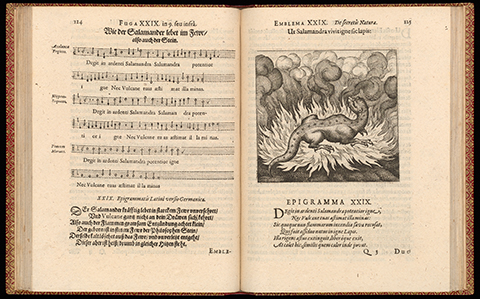 214 FUGA XXIX. in 9. seu infrà.
Wie der Salamander lebet im Fewr/
also auch der Stein.
Atalanta
fugiens.
Degit in ardenti Salamandra Salamandra potentior
i gne Nec Vulcane tuas æsti mat illa minas.
Hippomenes
sequens.
Degit in ardenti Salamandra Salaman dra poten-
ti or i gne Nec Vulcane tu as æstimat il la mi nas.
Pomum
Morans.
Degit in ardenti Salamandra potentior igne
Nec Vulcane tuas æstimat il la minas
XXIX. Epigrammatis Latini versio Germanica.
Der Salamander kräfftig lebet in starckem Fewr unversehret/
Und Vulcane gantz nicht an dein Drawen sich kehret/
Also auch der Flammen grausam Entzündung achtet klein/
Der geboren ist in stetem Fewr der Philosophen Stein/
EMBLE-
EMBLEMA XXIX. De secretis Naturæ. 215
Ut Salamandra vivit igne sic lapis:
EPIGRAMMA XXIX.
Degit in ardenti Salamandra potentior igne,
Nec Vulcane tuas æstimat illa minas:
Sic quoque non flammarum incendia sæva recusat,
Qui fuit assiduo natus in igne Lapis.
Illa rigens æstus extinguit, liberque exit,
At calet hic, similis quem calor inde juvat.
Q 3 Duo